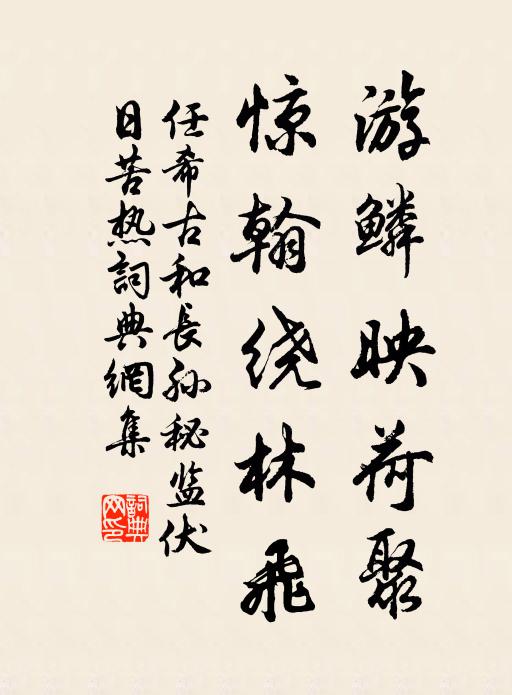 游鳞映荷聚
惊翰绕林飛
任希古和長孙秘监伏
日苦热詞典網集
詞典网印